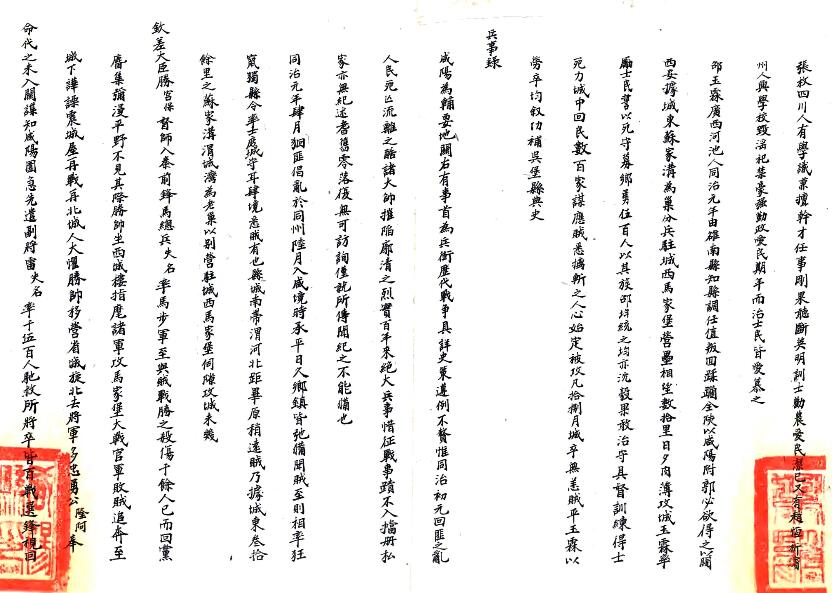 張枚四川人有學識稟擅幹才任事剛果聽斷英明訓士勸農愛民潔己又有賴恆祈眉
州人興學校毀淫祀禁豪强勤政愛民期年而治士民皆愛慕之
邵玉霖廣西河池人同治元年由雒南縣知縣調任值叛回蹂躪全陝以咸陽附郭必欲得之以闚
西安據城東蘇家溝為巢分兵駐城西馬家堡營壘相望數拾里日夕肉薄攻城玉霖率
勵士民誓以死守募鄉勇伍百人以其族邵均統之均亦沉毅果敢治守具督訓練得士
死力城中回民數百家謀應賊悉擒斬之人心始定被攻凡拾捌月城卒無恙賊平玉霖以
勞卒均敘功補吳堡縣典史
兵事錄
咸陽為輔要地關右有事首為兵衝歷代戰爭具詳史策遵例不贅惟同治初元回匪之亂
人民死亡流離之酷諸大帥摧陷廓清之烈實百年來絕大兵事惜征戰事蹟不入檔冊私
家亦無紀述耆舊零落復無可訪詢僅就所傳聞紀之不能備也
同治元年肆月回匪倡亂於同州陸月入咸境時承平日久鄉鎮皆弛備聞賊至則相率狂
竄獨縣令率士民城守耳肆境悉賊有也縣城南帶渭河北距畢原稍遠賊乃據城東叁拾
餘里之蘇家溝渭城灣為老巢以別營駐城西馬家堡伺隙攻城未幾
欽差大臣勝宮保督師入秦前鋒馬總兵失名率馬步軍至與賊戰勝之殺傷千餘人已而回黨
麕集瀰漫平野不見其際勝帥坐西城樓指麾諸軍攻馬家堡大戰官軍敗賊追奔至
城下譁譟震城屋再戰再北城人大懼勝帥移營省城旋北去將軍多忠勇公隆阿奉
命代之未入關諜知咸陽圍急先遣副將雷失名率千伍百人馳救所將卒皆百戰選鋒視回